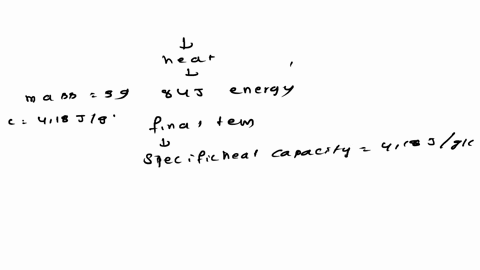 ↓
heat
↓
mass = 59 84J energy
c = 4,18 J/g°
final tem
↓
specific heat capacity = 4,18 J/g/c